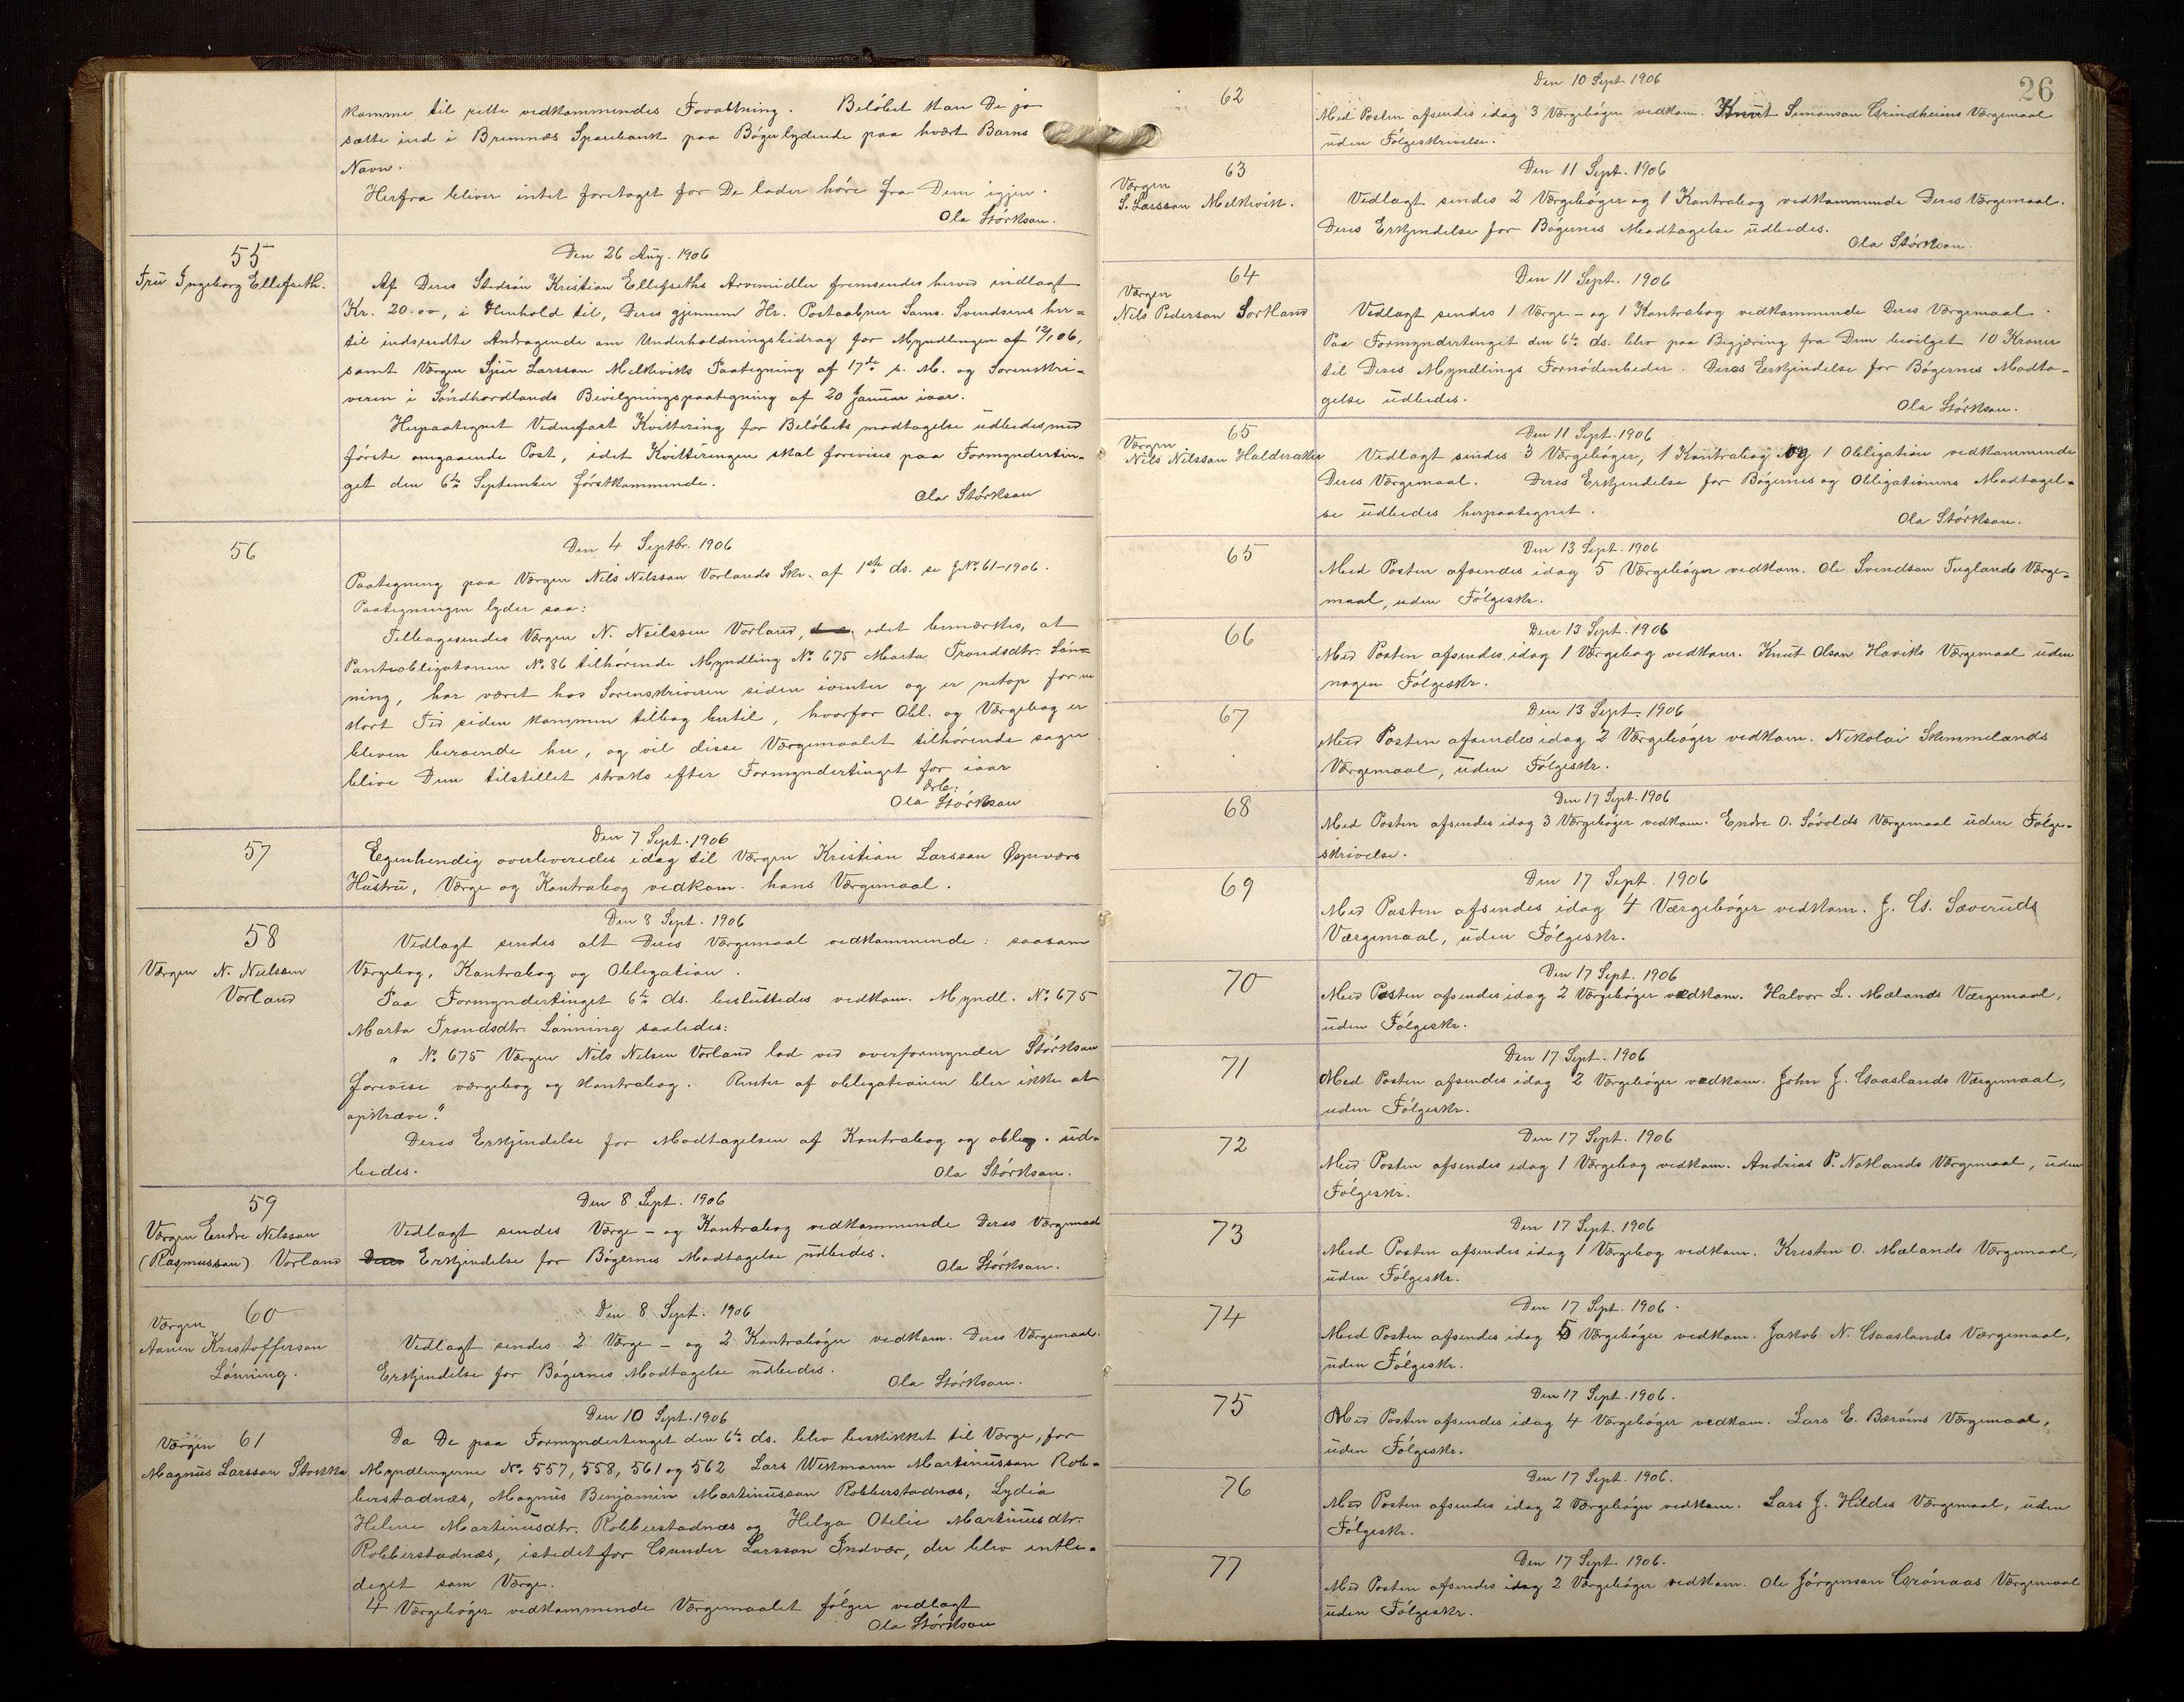 komme til rette vedkommendes Forvaltning. Beløbet kan De jo
sætte ind i Bremnæs Sparebank paa Bøger lydende paa hvert Barns
Navn.
Herfra bliver intet foretaget før De lader høre fra Dem igjen.
Ola Størkson.
55
Fru Ingeborg Ellefseth.
Den 26 Aug. 1906
Af Deres Stedsøn Kristian Ellefseths Arvemidler fremsendes herved indlagt
Kr. 20.00, i Henhold til, Deres gjennem Hr. Postaabner Sams. Svendsens her=
til indsendte Andragende om Underholdningsbidrag for Myndlingen af 12/1 06,
samt Værgen Sjur Larsson Melkeviks Paategning af 17de s. M. og Sorenskri-
veren i Søndhordlands Bevilgningspaategning af 20 Januar iaar.
Herpaategnet Vednefast Kvittering for Beløbets modtagelse udbedes med
første omgaaende Post, idet Kvitteringen skal forevises paa Formyndertin-
get den 6te September førstkommende.
Ola Størkson
56
Den 4 Septbr. 1906
Paategning paa Værgen Nils Nilsson Vorlands Skr. af 1ste ds. se J№ 61-1906.
Paategningen lyder saa:
Tilbagesendes Værgen N. Neilssen Vorland, idet bemærkes, at
Panteobligationen № 86 tilhørende Myndling № 675 Marta Trondsdtr. Løn=
ning, har været hos Sorenskriveren siden ivinter og er netop for en
kort Tid siden kommen tilbag hertil, hvorfor Obl. og Værgebog er
bleven beroende her, og vil disse Værgemaalet tilhørende sager
blive Dem tilstillet straks efter Formyndertinget for iaar
Ærb:
Ola Størkson
57
Den 7 Sept. 1906
Egenhendig overleveredes idag til Værgen Kristian Larsson Øspeværs
Hustru, Værge og Kontrabog vedkom. hans Værgemaal.
58
Værgen N. Nielssen
Vorland
Den 8 Sept. 1906
Vedlagt sendes alt Deres Værgemaal vedkommende: saasom
Værgebog, Kontrabog og Obligation.
Paa Formyndertinget 6te ds. besluttedes vedkom. Myndl. № 675
Marta Trondsdtr. Lønning saaledes:
" № 675 Værgen Nils Nelsen Vorland lod ved overformynder Størkson
forevise værgebog og kontrabog. Renter af obligationen blir ikke at
opkræve."
Deres Erkjendelse for Modtagelsen af Kontrabog og oblig. ud-
bedes.
Ola Størkson.
59
Værgen Endre Nilsson
(Rasmusson) Vorland
Den 8 Sept. 1906
Vedlagt sendes Værge - og Kontrabog vedkommende Deres Værgemaal
Deres Erkjendelse for Bøgernes Modtagelse udbedes.
Ola Størkson.
60
Værgen
Aanen Kristofferson
Lønning.
Den 8 Sept. 1906
Vedlagt sendes 2 Værge - og 2 Kontrabøger vedkom. Deres Værgemaal.
Erkjendelse for Bøgernes Modtagelse udbedes.
Ola Størkson.
61
Værgen
Magnus Larsson Stokka
Den 10 Sept. 1906
Da De paa Formyndertinget den 6te ds. blev beskikket til Værge, for
Myndlingerne № 557, 558, 561 og 562 Lars Wekmann Martinusson Rob-
berstadnæs, Magnus Benjamin Martinusson Robberstadnæs, Lydia
Helene Martinusdtr. Robberstadnæs og Helga Otelie Martinusdtr.
Robberstadnæs, istedetfor Gunder Larsson Indvær, der blev entle-
diget som Værge.
4 Værgebøger vedkommende Værgemaalet følger vedlagt
Ola Størkson
26
62
Den 10 Sept. 1906
Med Posten afsendes idag 3 Værgebøger vedkom. Knut Simonson Grindheims Værgemaal
uden Følgeskrivelse.
63
Værgen
S. Larsson Melkevik.
Den 11 Sept. 1906
Vedlagt sendes 2 Værgebøger og 1 Kontrabog vedkommende Deres Værgemaal.
Deres Erkjendelse for Bøgernes Modtagelse udbedes.
Ola Størkson.
64
Værgen
Nils Pederson Sortland
Den 11 Sept. 1906
Vedlagt sendes 1 Værge - og 1 Kontrabog vedkommende Deres Værgemaal.
Paa Formyndertinget den 6te ds. blev paa Begjæring fra Dem bevilget 10 Kroner
til Deres Myndlings Fornødenheder. Deres Erkjendelse for Bøgernes Modta-
gelse udbedes.
Ola Størkson.
65
Værgen
Nils Nilsson Halderaker
Den 11 Sept. 1906
Vedlagt sendes 3 Værgebøger, 1 Kontrabog og 1 Obligation vedkommende
Deres Værgemaal. Deres Erkjendelse for Bøgernes og Obligationens Modtagel-
se udbedes herpaategnet.
Ola Størkson.
65
Den 13 Sept. 1906
Med Posten afsendes idag 5 Værgebøger vedkom. Ole Svendson Fuglands Værge=
maal, uden Følgeskr.
66
Den 13 Sept. 1906
Med Posten afsendes idag 1 Værgebog vedkom. Knut Olson Haviks Værgemaal uden
nogen Følgeskr.
67
Den 13 Sept. 1906
Med Posten afsendes idag 2 Værgebøger vedkom. Nikolai Skimmelands
Værgemaal, uden Følgeskr.
68
Den 17 Sept. 1906
Med Posten afsendes idag 3 Værgebøger vedkom. Endre O. Søvolds Værgemaal uden Følge-
skrivelse.
69
Den 17 Sept. 1906
Med Posten afsendes idag 4 Værgebøger vedkom. J. G. Sæveruds
Værgemaal, uden Følgeskr.
70
Den 17 Sept. 1906
Med Posten afsendes idag 2 Værgebøger vedkom. Halvor L. Mælands Værgemaal,
uden Følgeskr.
71
Den 17 Sept. 1906
Med Posten afsendes idag 2 Værgebøger vedkom. John J. Gaaslands Værgemaal,
uden Følgeskr.
72
Den 17 Sept. 1906
Med Posten afsendes idag 1 Værgebog vedkom. Andrias P. Notlands Værgemaal, uden
Følgeskr.
73
Den 17 Sept. 1906
Med Posten afsendes idag 1 Værgebog vedkom. Kristen O. Mælands Værgemaal,
uden Følgeskr.
74
Den 17 Sept. 1906.
Med Posten afsendes idag 5 Værgebøger vedkom. Jakob N. Gaaslands Værgemaal,
uden Følgeskr.
75
Den 17 Sept. 1906.
Med Posten afsendes idag 4 Værgebøger vedkom. Lars E. Bærøins Værgemaal,
uden Følgeskr.
76
Den 17 Sept. 1906.
Med Posten afsendes idag 2 Værgebøger vedkom. Lars J. Hildes Værgemaal, uden
Følgeskr.
77
Den 17 Sept. 1906.
Med Posten afsendes idag 2 Værgebøger vedkom. Ole Jørgenson Grønaas Værgemaal
uden Følgeskr.